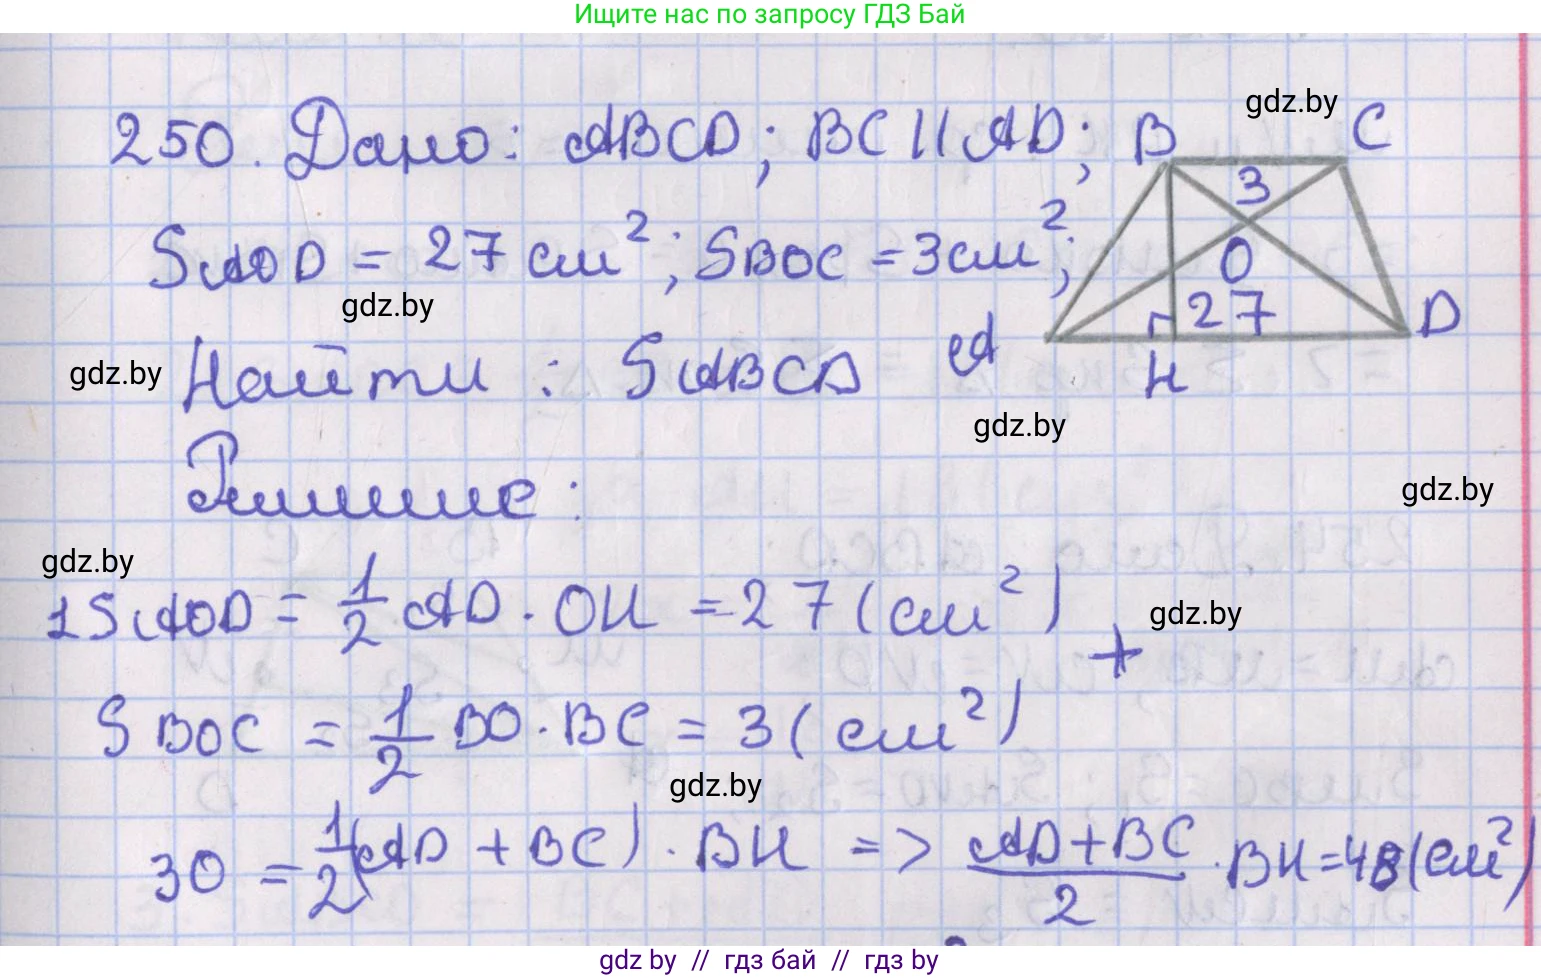 Ищите нас по запросу ГДЗ Бай
gdz.by
250. Дано: ABCD; BC || AD;
B C
3
SAOD = 27 см²; SBOC = 3 см²;
O
27
gdz.by
A H D
gdz.by
Найти: SABCD
gdz.by
Решение:
gdz.by
gdz.by
1 SAOD = 1/2 AD · OH = 27 (см²)
gdz.by
+
SBOC = 1/2 BO · BC = 3 (см²)
gdz.by
30 = 1/2 (AD + BC) · BH => (AD + BC)/2 · BH = 48 (см²)
gdz by // гдз бай // гдз by